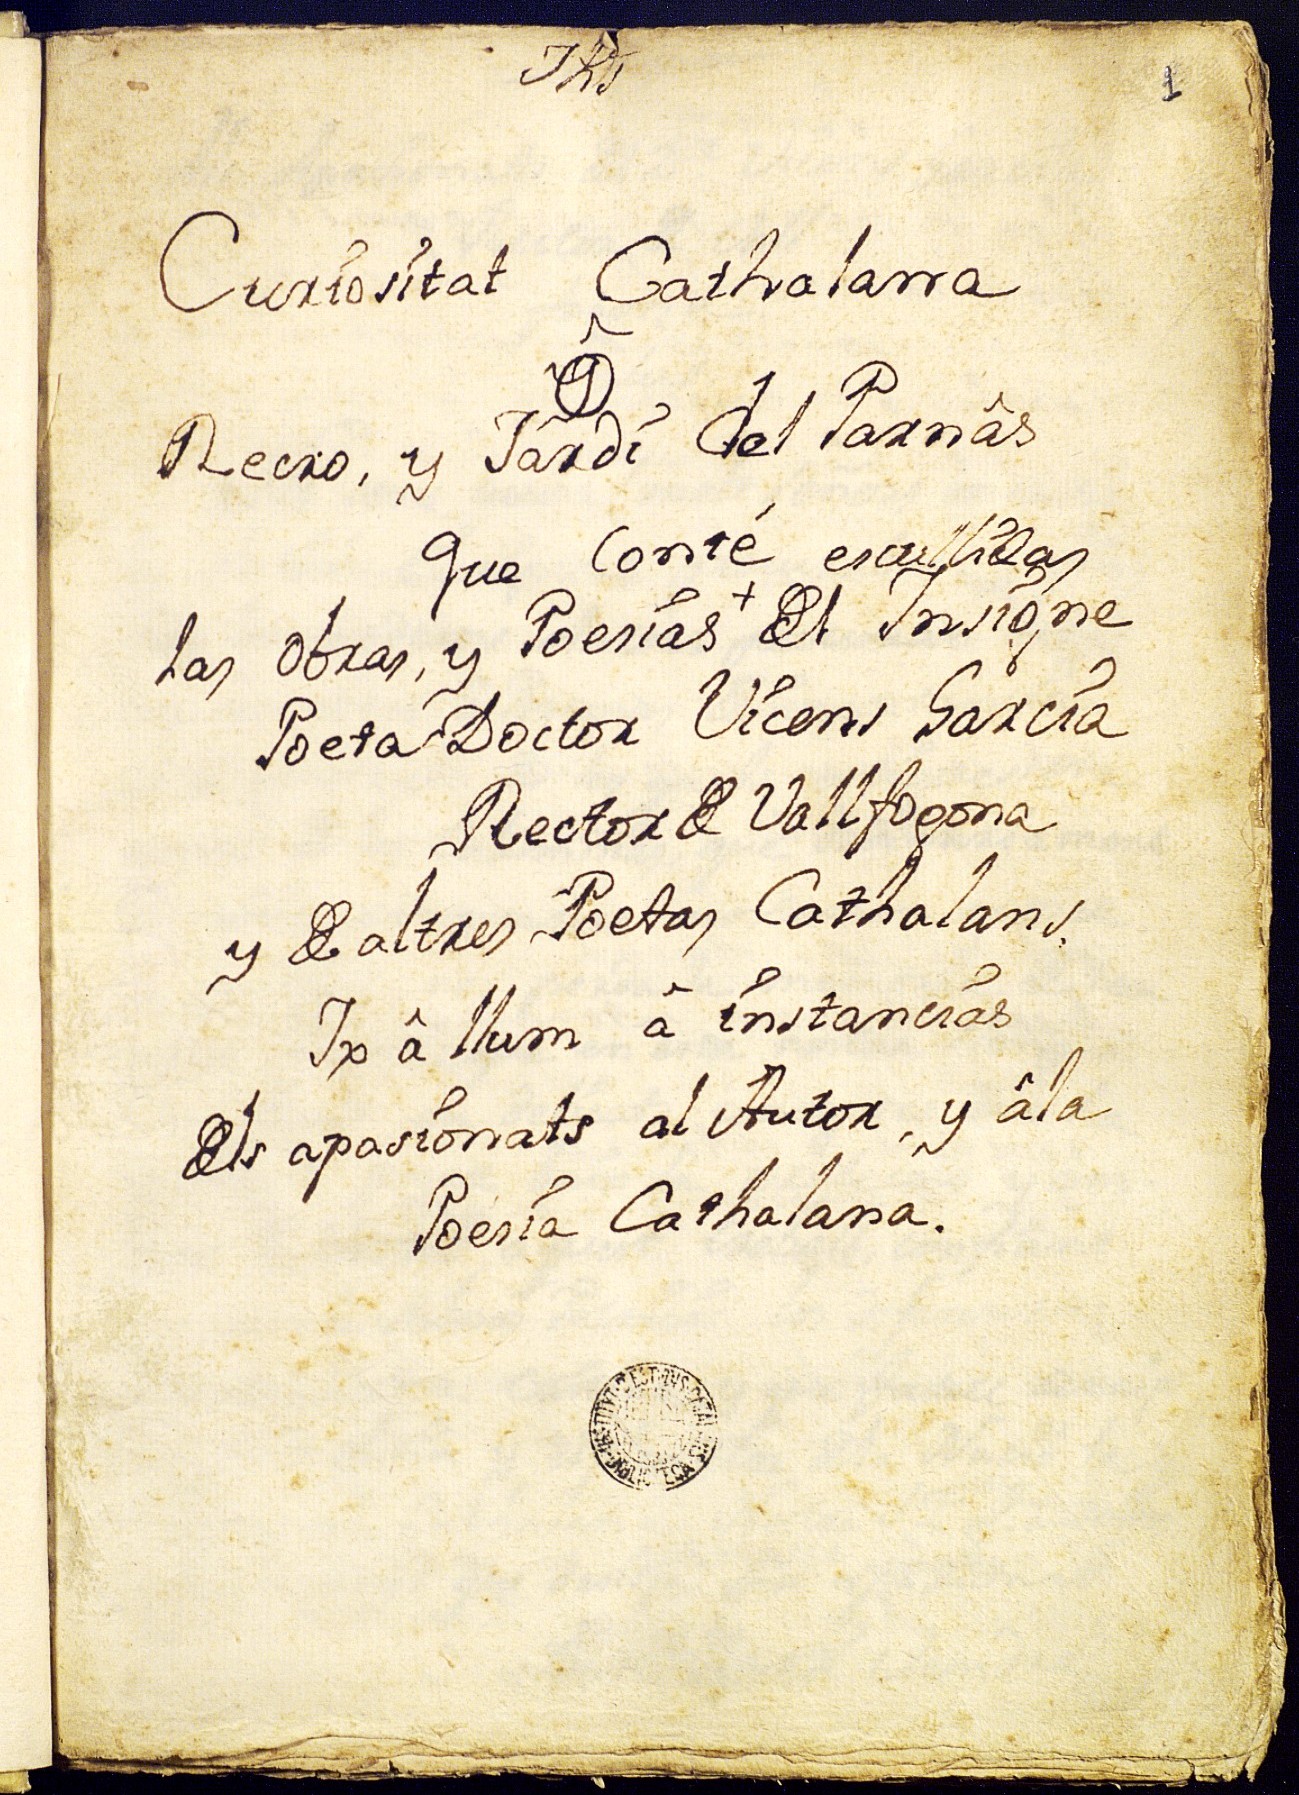 Jhs
1
Curiositat Cathalana
Ô
Recro, y Jardi del Parnâs
Que Conté escullidas
las obras, y Poesias + del Insigne
Poeta Doctor Vicens Garcia
Rector de Vallfogona
y de altres Poetas Cathalans.
Ix â llum â instancias
dels apasionats al Autor, y âla
Poesia Cathalana.
INSTITVT D'ESTVDIS CATALANS
BIBLIOTECA